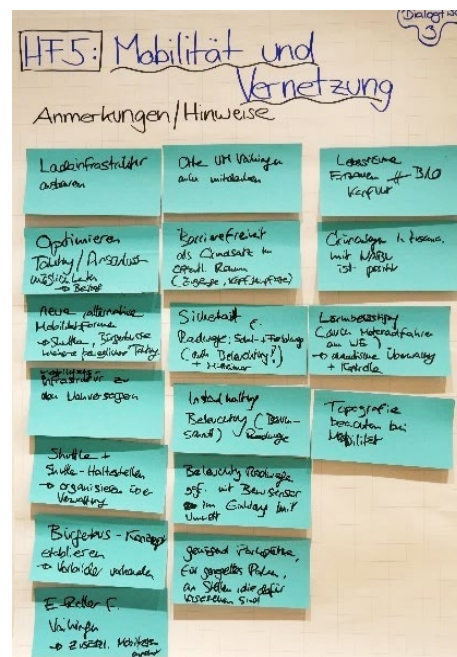 Dialogtisch
3
HF5: Mobilität und
Vernetzung
Anmerkungen/Hinweise
Ladeinfrastruktur
ausbauen
Optimieren
Taktung/Anschluss-
möglichkeiten
Neue, alternative
Mobilitätsformen
→ Shuttles, Bürgerbusse
Infrastruktur zu
den Nahversorgern
Shuttle +
Shuttle-Haltestellen
→ organisieren über
Verwaltung
Bürgerbus-Konzept
etablieren
→ Vorbilder vorhanden
E-Roller f.
Vaihingen
Orte um Vaihingen
auch mitdenken
Barrierefreiheit
als Grundsatz im
öffentl. Raum
Sicherheit f.
Radwege: Schul- +
(auch Beleuchtung?)
Instandhaltung
Beleuchtung
Radwege
Beleuchtung Radwege
ggf. mit Bew.sensor
im Einklang mit
Umwelt
genügend Parkplätze,
für geregeltes Parken,
an Stellen, die dafür
vorgesehen sind
Lebensräume
B10
Grünanlagen in
mit NABU
ist positiv
Lärmbelästigung
(durch Motorradfahrer
am WE)
Überwachung
+ Kontrolle
Topografie
beachten bei
Mobilität